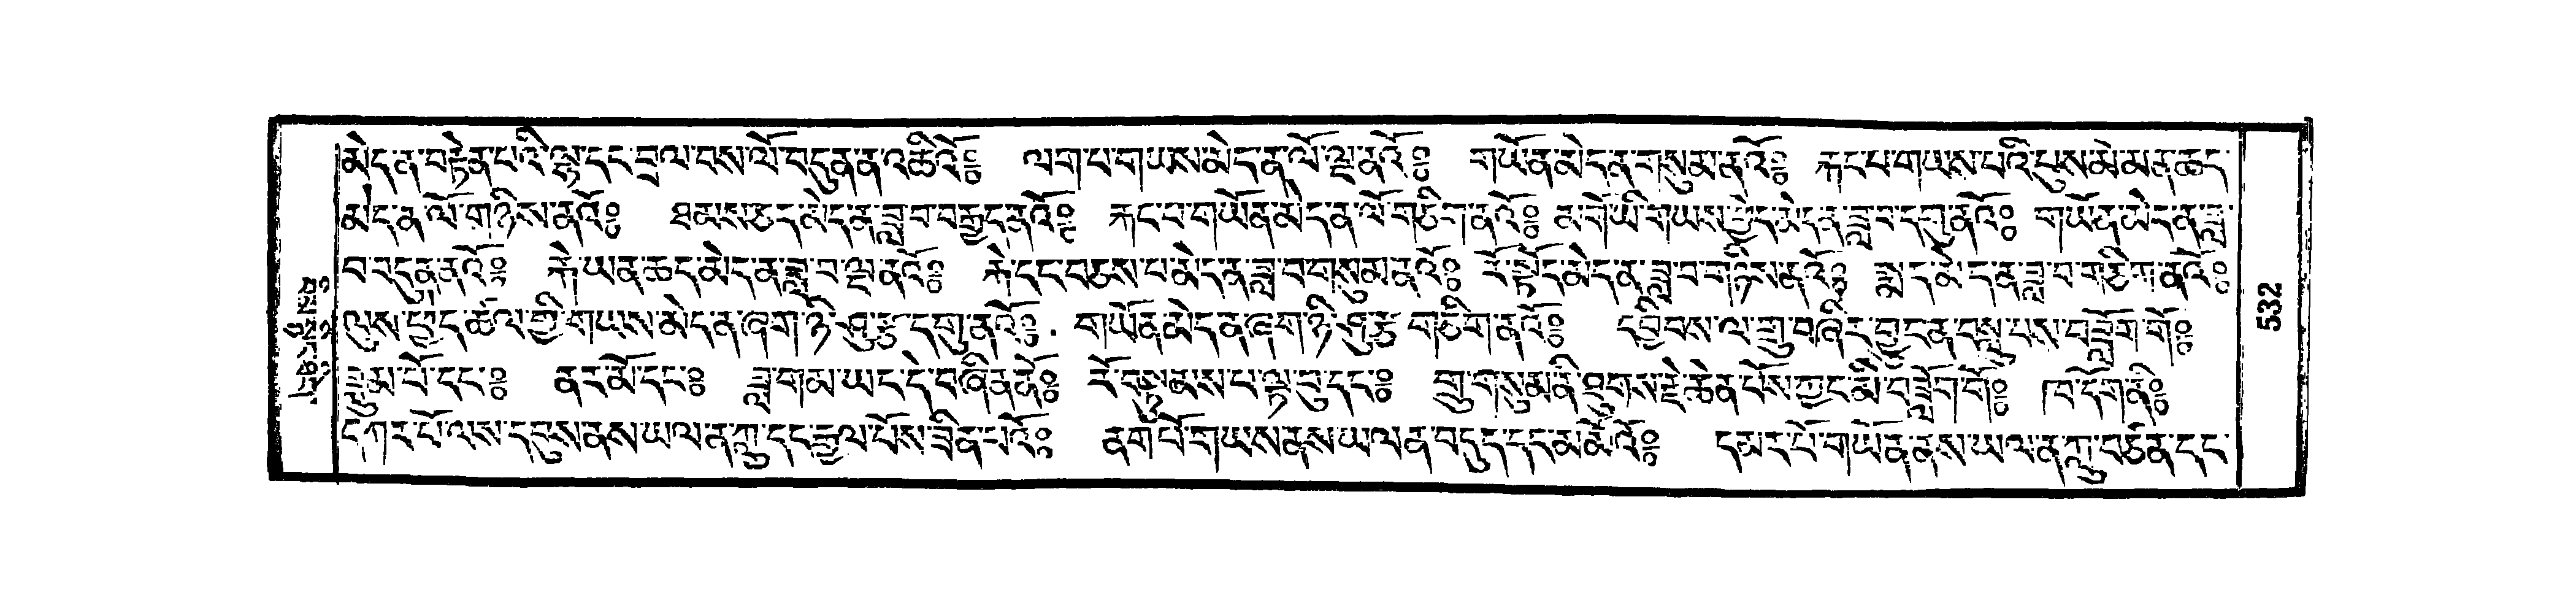 མེད་ན་བརྟེན་པའི་ལྷ་དང་བྲལ་བས་ལོ་བདུན་ན་འཆིའོ༔ ལག་པ་གཡས་མེད་ན་ལོ་ལྔ་ནའོ༔ གཡོན་མེད་ན་གསུམ་ནའོ༔ རྐང་པ་གཡས་པའི་པུས་མོ་མན་ཆད་
མེད་ན་ལོ་གཉིས་ནའོ༔ ཐམས་ཅད་མེད་ན་ཟླ་བ་བརྒྱད་ནའོ༔ རྐང་པ་གཡོན་མེད་ན་ལོ་གཅིག་ནའོ༔ ན་གེ་ཡི་གཡས་ཕྱེད་མེད་ན་ཟླ་བ་དགུ་ནའོ༔ གཡོན་མེད་ན་ཟླ་
བ་བདུན་ནའོ༔ རྐེ་ཡན་ཆད་མེད་ན་ཟླ་བ་ལྔ་ནའོ༔ རྐེ་དང་བཅས་པ་མེད་ན་ཟླ་བ་གསུམ་ནའོ༔ རོ་སྟོད་མེད་ན་ཟླ་བ་གཉིས་ནའོ༔ སྨད་མེད་ན་ཟླ་བ་གཅིག་ནའོ༔
ལུས་ཕྱེད་ཚོལ་གྱི་གཡས་མེད་ན་ཞག་ཉི་ཤུ་རྩ་དགུ་ནའོ༔ གཡོན་མེད་ན་ཞག་ཉི་ཤུ་རྩ་གཅིག་ནའོ༔ དབྱིབས་ལ་གྲུ་བཞིར་བྱུང་ན་བསླུ་བས་བཟློག་གོ༔
ཟླུམ་པོ་དང་༔ ནར་མོ་དང་༔ ཟླ་གམ་ཡང་དེ་བཞིན་ནོ༔ རོ་དྲིལ་ལྟ་བུ་དང་༔ གྲུ་གསུམ་ནི་ཐུགས་རྗེ་ཆེན་པོས་ཀྱང་མི་བཟློག་གོ༔ ཁ་དོག་ནི༔
དཀར་པོ་ལས་དབུས་ནས་ཡལ་ན་ཀླུ་དང་རྒྱལ་པོས་ཟིན་པའོ༔ ནག་པོ་གཡས་ནས་ཡལ་ན་བདུད་དང་མ་མོའོ༔ དམར་པོ་གཡོན་ནས་ཡལ་ན་ཀླུ་བཙན་དང་